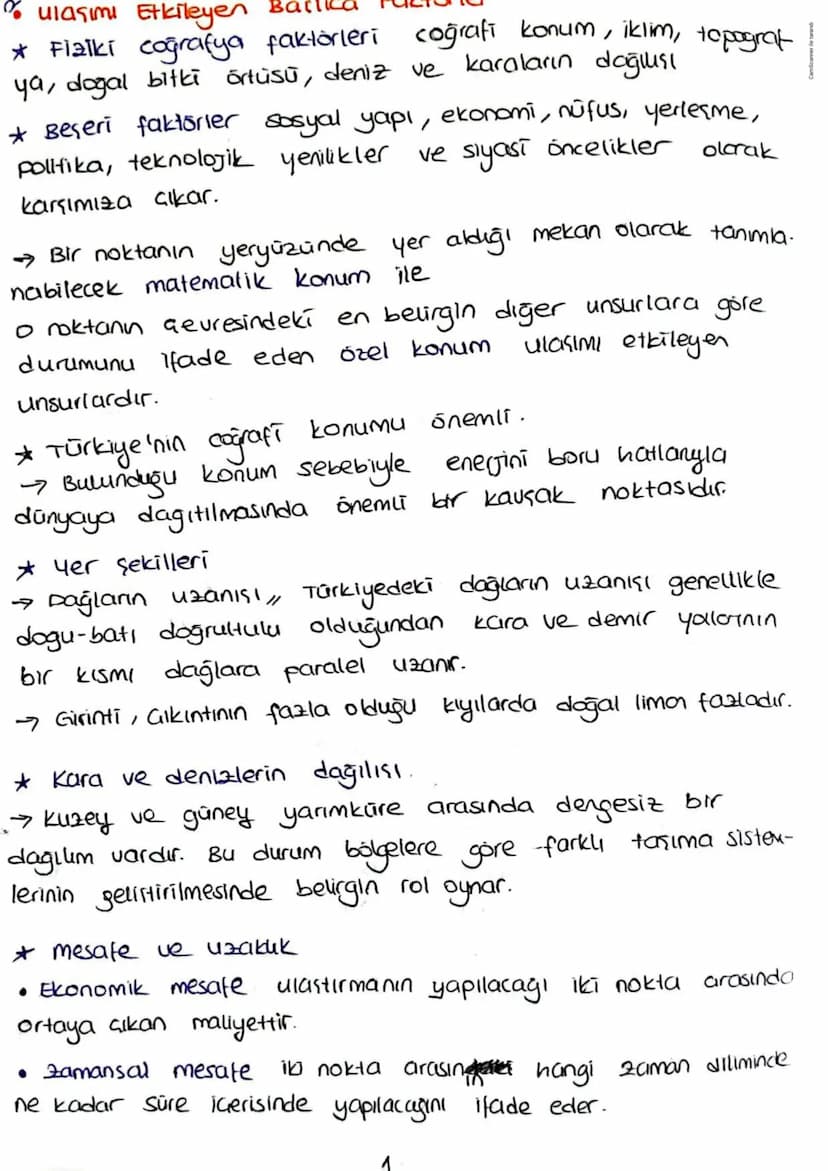 ulaşımı Etkileyen Başlıca Faktörle
* Fiziki coğrafya faktörleri coğrafi konum, iklim, topograf
ya, doğal bitki örtüsü, deniz ve karaların dağılışı
* Beşeri faktörler sosyal yapı, ekonomi, nüfus, yerleşme,
politika, teknolojik yenilikler ve siyasi öncelikler olarak
karşımıza çıkar.
→ Bir noktanın yeryüzünde yer aldığı mekan olarak tanımla-
nabilecek matematik konum ile
o noktanın çevresindeki en belirgin diğer unsurlara göre
durumunu ifade eden özel konum ulaşımı etkileyen
unsurlardır.
* Türkiye'nin coğrafi konumu önemli.
→ Bulunduğu konum sebebiyle enerjini boru hatlarıyla
dünyaya dağıtılmasında önemli bir kavşak noktasıdır.
* Yer şekilleri
→ Dağların uzanışı,, Türkiyedeki dağların uzanışı genellikle
dogu-batı doğrultulu olduğundan kara ve demir yollarının
bir kısmı dağlara paralel uzanır.
→ Girinti, çıkıntının fazla olduğu kıyılarda doğal liman fazladır.
* Kara ve denizlerin dağılışı.
→ Kuzey ve güney yarımküre arasında dengesiz bir
dağılım vardır. Bu durum bölgelere göre farklı taşıma sistem-
lerinin geliştirilmesinde belirgin rol oynar.
* mesafe ve uzaklık
• Ekonomik mesafe ulaştırmanın yapılacağı iki nokta arasında
ortaya çıkan maliyettir.
• Zamansal mesafe iki nokta arasın hangi zaman diliminde
ne kadar süre içerisinde yapılacağını ifade eder.
1
CamScanner ile tarandı